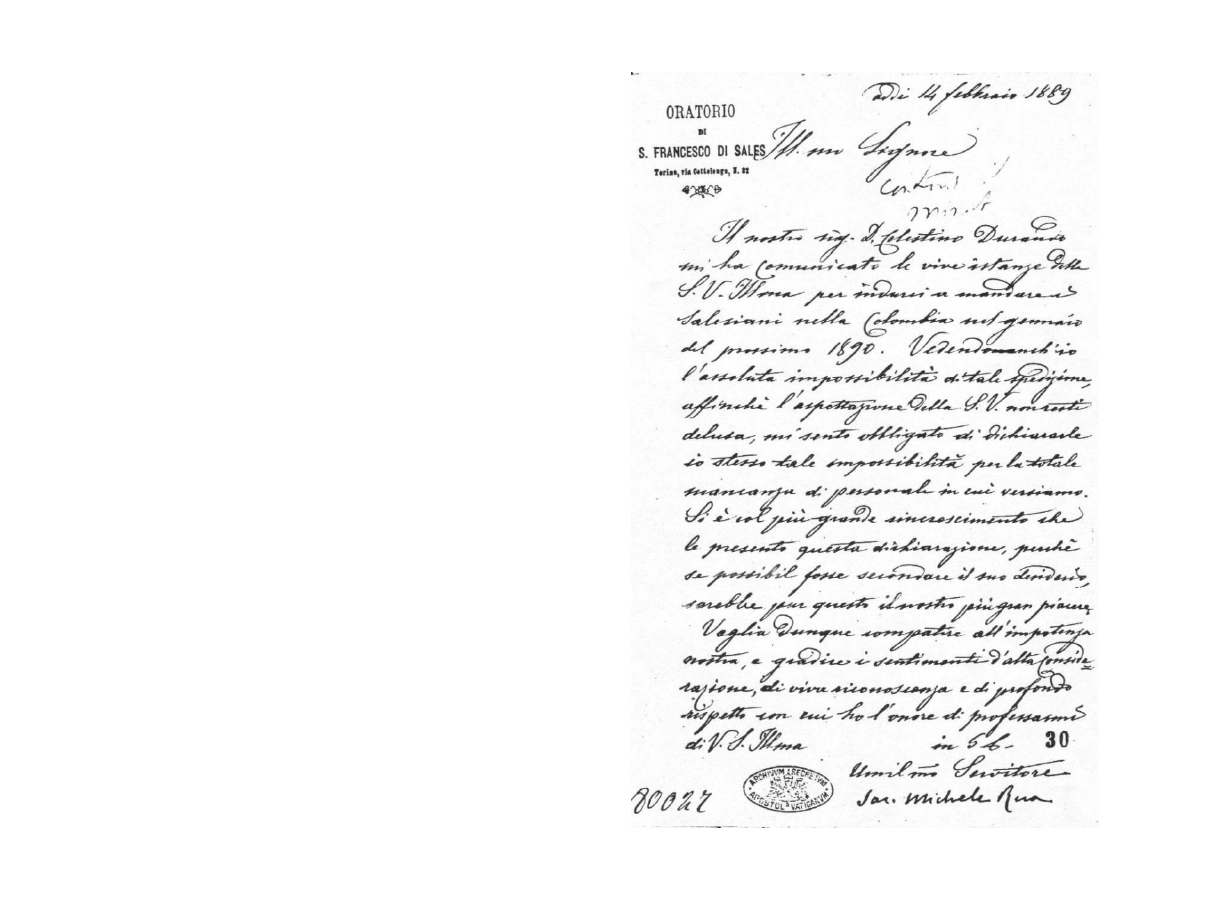 addi 14 febbraio 1889
ORATORIO
DI
S. FRANCESCO DI SALES
Torino, via Cottolengo, N. 32
Ill.mo Signore
Il nostro sig. D. Celestino Durando
mi ha comunicato le vive istanze della
S. V. Ill.ma per indurci a mandare i
Salesiani nella Colombia nel gennaio
del prossimo 1890. Vedendo anch'io
l'assoluta impossibilità di tale spedizione,
affinchè l'aspettazione della S. V. non resti
delusa, mi sento obbligato di dichiararle
io stesso tale impossibilità per la totale
mancanza di personale in cui versiamo.
Si è col più grande rincrescimento che
le presento questa dichiarazione, perchè
se possibil fosse secondare il suo desiderio,
sarebbe pur questo il nostro più gran piacere.
Voglia dunque compatire all'impotenza
nostra, e gradire i sentimenti d'alta conside=
razione, di viva riconoscenza e di profondo
rispetto con cui ho l'onore di professarmi
di V. S. Ill.ma
in
30
Umil.mo Servitore
Sac. Michele Rua
ARCHIVVM SECRETVM
APOSTOL. VATICANVM
80027